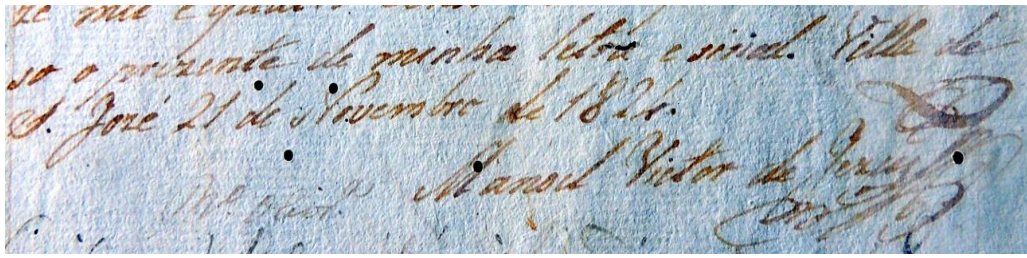 de mil e quatro
so o prezente de minha letra e sinal. Villa de
S. José 21 de Novembro de 1824.
Manoel Victor de Jesus